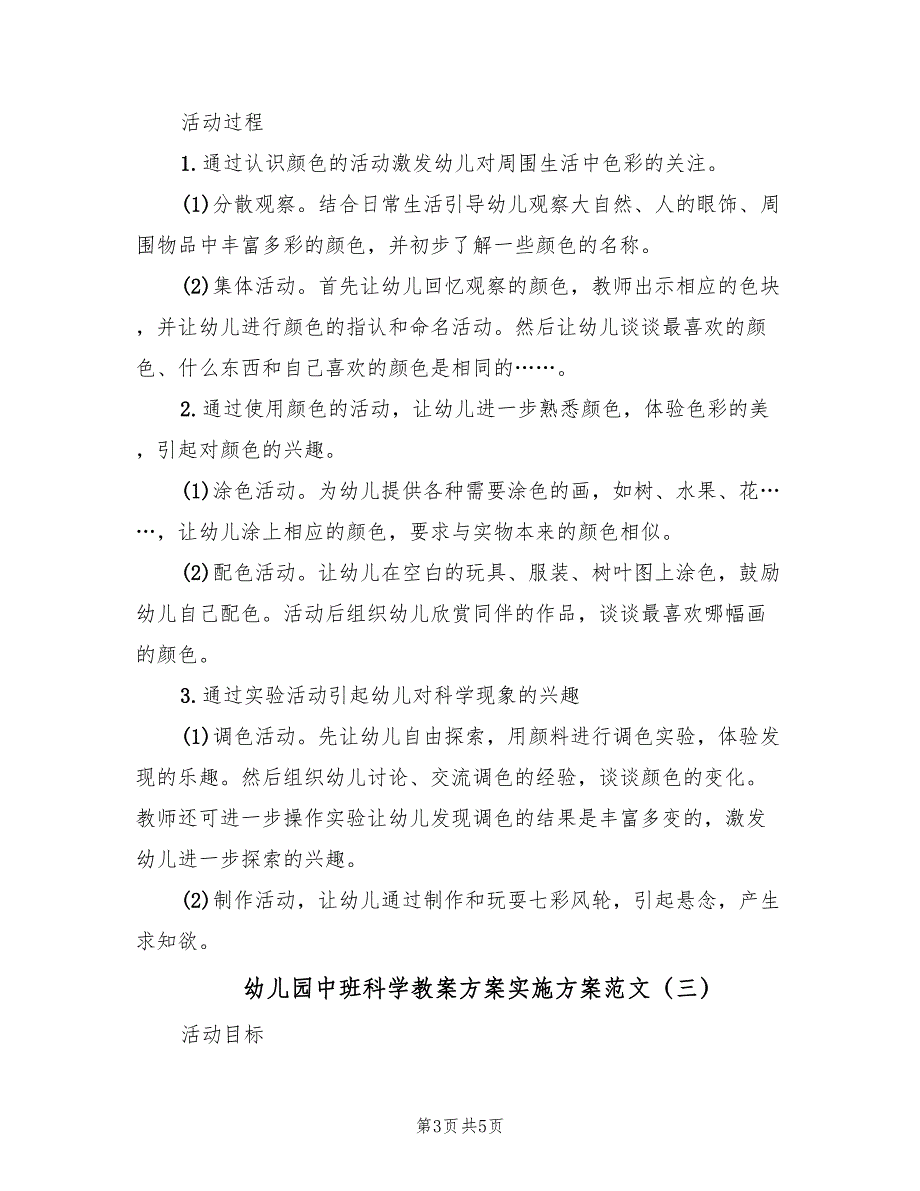 活动过程
1.通过认识颜色的活动激发幼儿对周围生活中色彩的关注。
(1)分散观察。结合日常生活引导幼儿观察大自然、人的眼饰、周
围物品中丰富多彩的颜色，并初步了解一些颜色的名称。
(2)集体活动。首先让幼儿回忆观察的颜色，教师出示相应的色块
，并让幼儿进行颜色的指认和命名活动。然后让幼儿谈谈最喜欢的颜
色、什么东西和自己喜欢的颜色是相同的……。
2.通过使用颜色的活动，让幼儿进一步熟悉颜色，体验色彩的美
，引起对颜色的兴趣。
(1)涂色活动。为幼儿提供各种需要涂色的画，如树、水果、花…
…，让幼儿涂上相应的颜色，要求与实物本来的颜色相似。
(2)配色活动。让幼儿在空白的玩具、服装、树叶图上涂色，鼓励
幼儿自己配色。活动后组织幼儿欣赏同伴的作品，谈谈最喜欢哪幅画
的颜色。
3.通过实验活动引起幼儿对科学现象的兴趣
(1)调色活动。先让幼儿自由探索，用颜料进行调色实验，体验发
现的乐趣。然后组织幼儿讨论、交流调色的经验，谈谈颜色的变化。
教师还可进一步操作实验让幼儿发现调色的结果是丰富多变的，激发
幼儿进一步探索的兴趣。
(2)制作活动，让幼儿通过制作和玩耍七彩风轮，引起悬念，产生
求知欲。
幼儿园中班科学教案方案实施方案范文（三）
活动目标
第3页 共5页